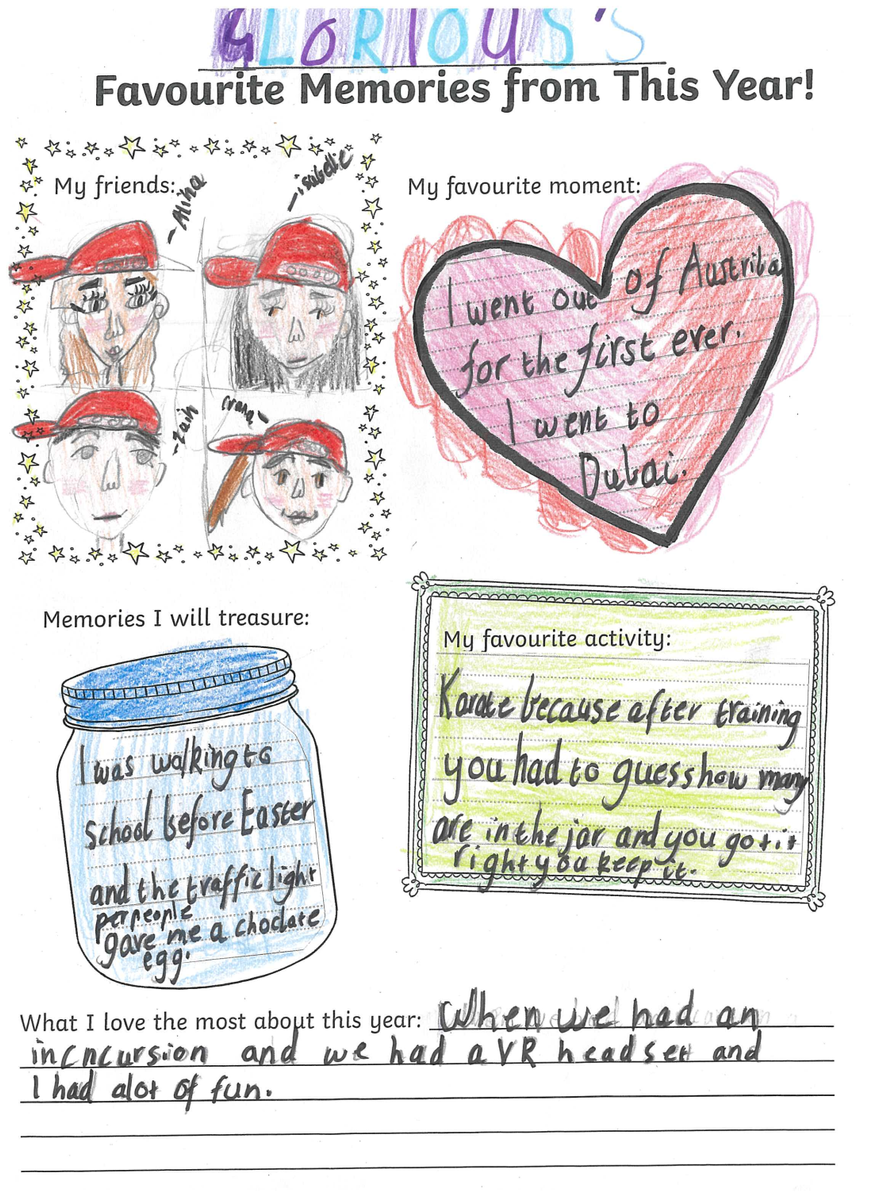 GLORIOUS's
Favourite Memories from This Year!
My friends:
-Alina
-isabelle
-Zain
My favourite moment:
I went out of Austrila
for the first ever.
I went to
Dubai.
Memories I will treasure:
I was walking to
school before Easter
and the traffic light
perpeople
gave me a choclate
egg.
My favourite activity:
Karate because after training
you had to guess how many
are in the jar and you got it
right you keep it.
What I love the most about this year: When we had an
incncursion and we had a VR headset and
I had alot of fun.